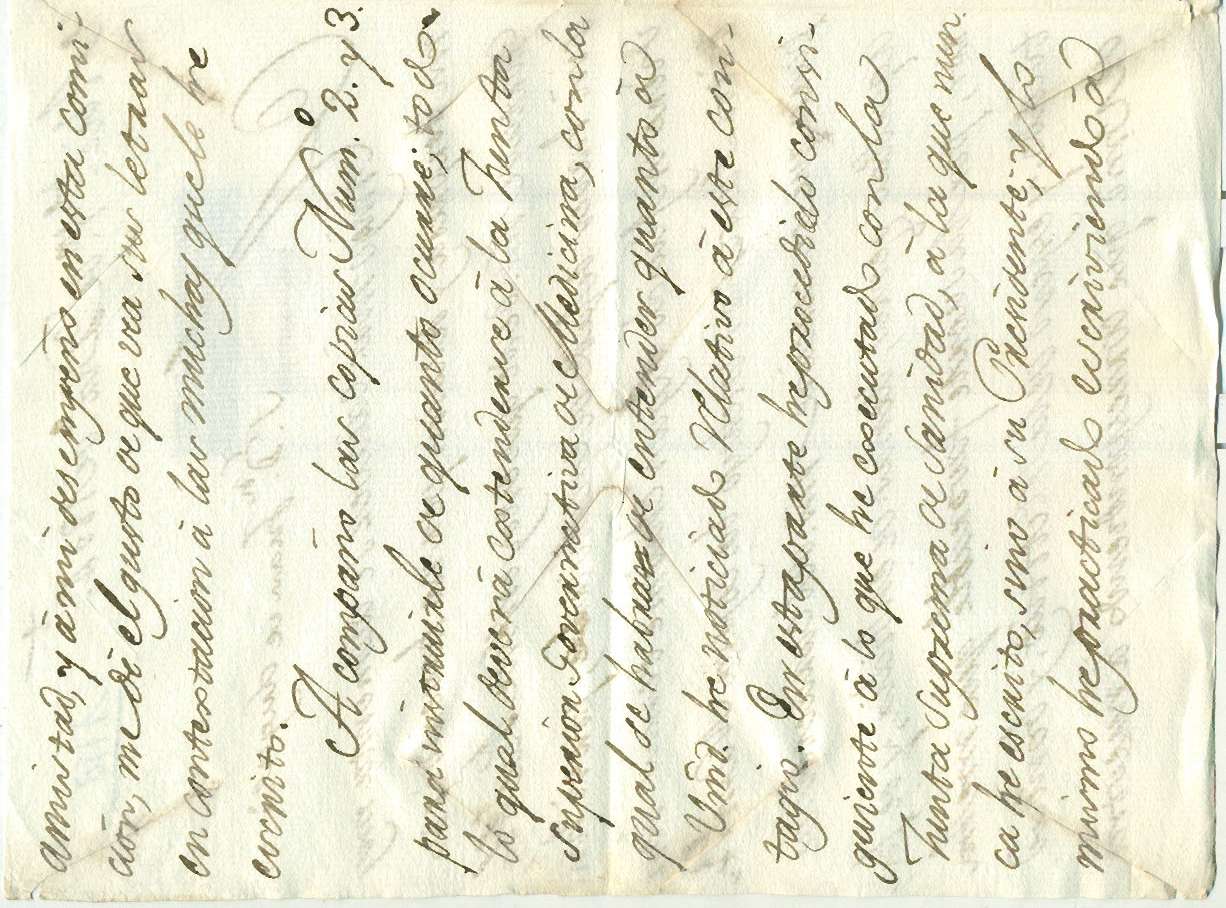 amistad, y à mi desempeño en esta comi-
cion, me dè el gusto de que vea sus letras
en contextacion à las muchas que le he
escrito.
Acompaño las copias Num.º 2. y 3.
para instruirle de quanto ocurre; todo
lo qual deverà estenderse à la Junta
Superior Governativa de Medicina, con la
qual se habra de entender quanto à
Vmd. he noticiado relativo à este con-
tagio. En esta parte he procedido consi-
guiente à lo que he executado con la
Junta Suprema de Sanidad, à la que nun-
ca he escrito, sino à su Presidente; y lo
mismo he practicado escriviendo à